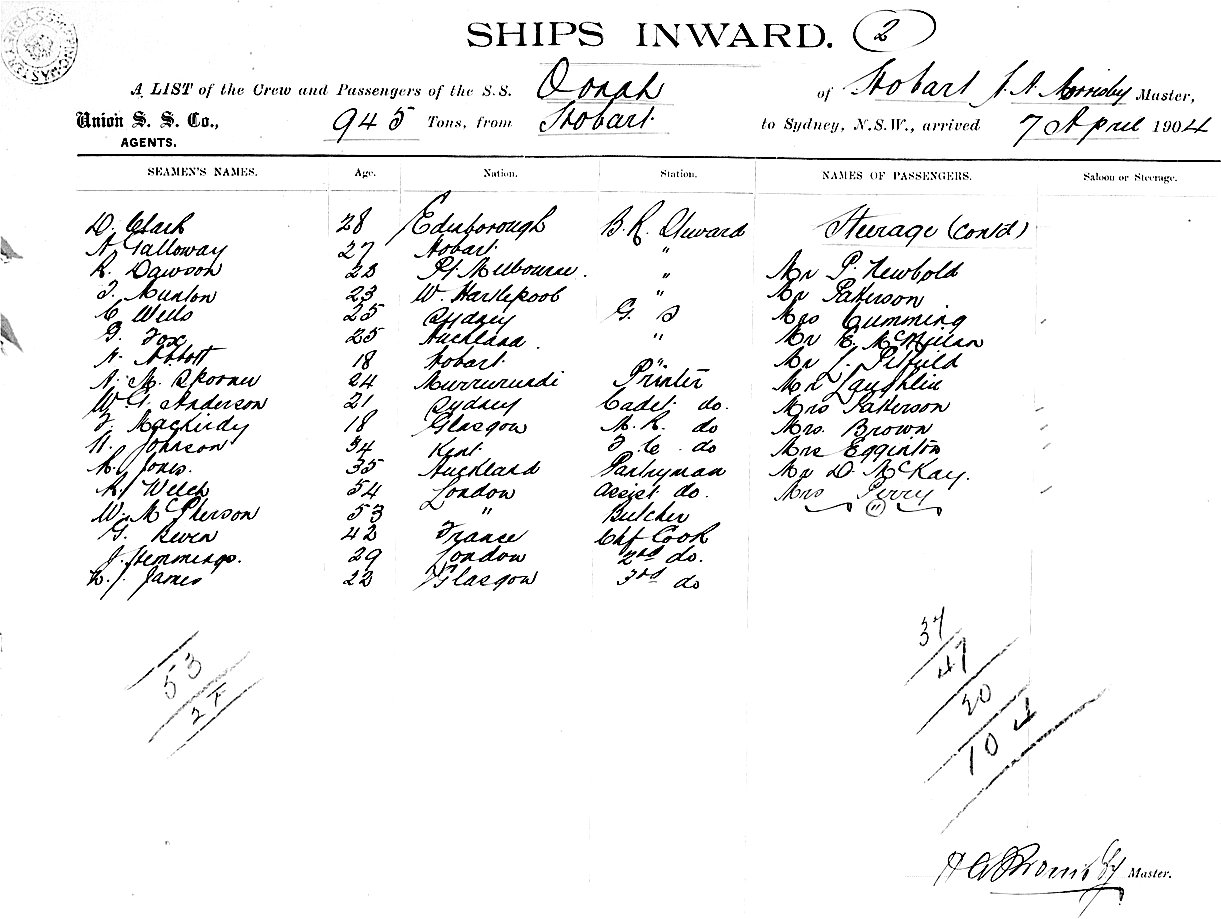 SHIPS INWARD. 2
A LIST of the Crew and Passengers of the S.S. Oonah of Hobart Master,
Union S. S. Co., 945 Tons, from Hobart to Sydney, N.S.W., arrived 7 April 1904
AGENTS.
SEAMEN'S NAMES. Age. Nation. Station. NAMES OF PASSENGERS. Saloon or Steerage.
D. Clark 28 Edinborough B. R. Steward Steerage (contd)
A. Galloway 27 Hobart "
R. Dawson 23 Pt. Melbourne " Mr P. Newbold
T. Munton 23 W. Hartlepool " Mr Patterson
C. Wells 25 Sydney G. S Mrs Cumming
G. Fox 25 Auckland " Mr E. McMillan
A. Abbott 18 Hobart " Mr L. Pitfield
A. M. Spooner 24 Murrurundi Printer Mr Laughlin
W. G. Anderson 21 Sydney Cadet do. Mrs Patterson
18 Glasgow M. R. do Mrs. Brown
H. Johnson 34 Kent T. C. do Mrs Egginton
M. Jones. 35 Auckland Pantryman Mr D. McKay.
A. Welch 54 London Assist do. Mrs Perry
W. McPherson 53 " Butcher "
G. Beven 42 France Chf Cook
J. Hemmings. 29 London 2nd do.
James 22 Glasgow 3rd do
37
47
53
20
104
Master.